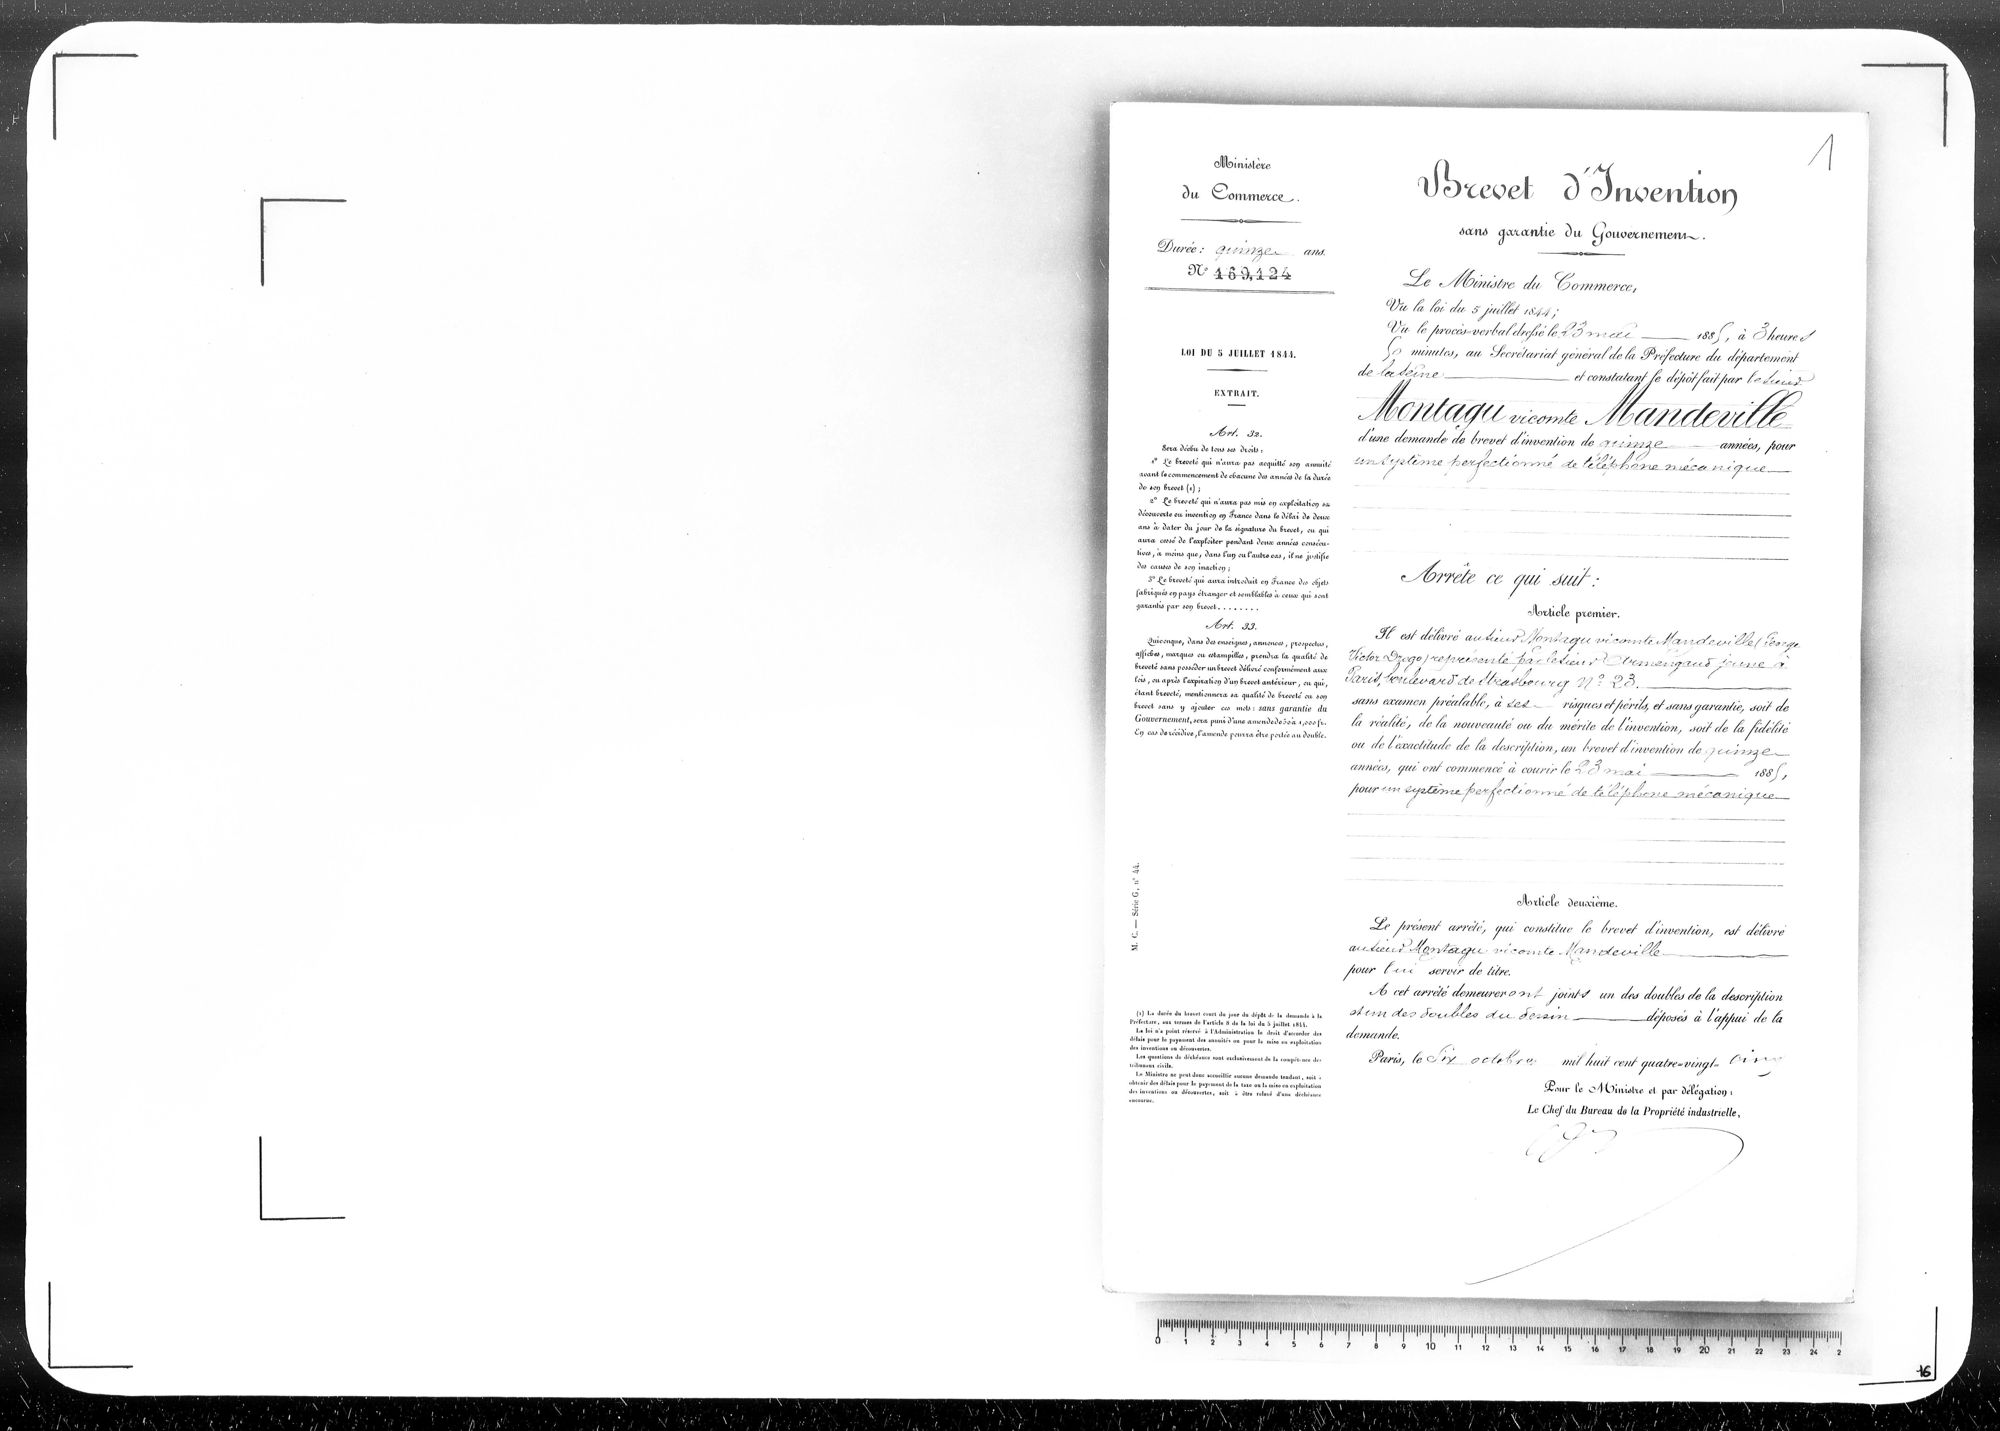 1
Ministère
du Commerce.
Durée : quinze ans.
N° 169,124
LOI DU 5 JUILLET 1844.
EXTRAIT.
Art. 32.
Sera déchu de tous ses droits :
1° Le breveté qui n'aura pas acquitté son annuité
avant le commencement de chacune des années de la durée
de son brevet (1) ;
2° Le breveté qui n'aura pas mis en exploitation sa
découverte ou invention en France dans le délai de deux
ans à dater du jour de la signature du brevet, ou qui
aura cessé de l'exploiter pendant deux années consécu-
tives, à moins que, dans l'un ou l'autre cas, il ne justifie
des causes de son inaction ;
3° Le breveté qui aura introduit en France des objets
fabriqués en pays étranger et semblables à ceux qui sont
garantis par son brevet........
Art. 33.
Quiconque, dans des enseignes, annonces, prospectus,
affiches, marques ou estampilles, prendra la qualité de
breveté sans posséder un brevet délivré conformément aux
lois, ou après l'expiration d'un brevet antérieur, ou qui,
étant breveté, mentionnera sa qualité de breveté ou son
brevet sans y ajouter ces mots : sans garantie du
Gouvernement, sera puni d'une amende de 50 à 1,000 fr.
En cas de récidive, l'amende pourra être portée au double.
M. C. — Série G, n° 44.
(1) La durée du brevet court du jour du dépôt de la demande à la
Préfecture, aux termes de l'article 8 de la loi du 5 juillet 1844.
La loi n'a point réservé à l'Administration le droit d'accorder des
délais pour le payement des annuités ou pour la mise en exploitation
des inventions ou découvertes.
Les questions de déchéance sont exclusivement de la compétence des
tribunaux civils.
Le Ministre ne peut donc accueillir aucune demande tendant, soit à
obtenir des délais pour le payement de la taxe ou la mise en exploitation
des inventions ou découvertes, soit à être relevé d'une déchéance
encourue.
Brevet d'Invention
sans garantie du Gouvernement.
Le Ministre du Commerce,
Vu la loi du 5 juillet 1844 ;
Vu le procès-verbal dressé le 23 mai 1885, à 3 heures
50 minutes, au Secrétariat général de la Préfecture du département
de la Seine et constatant le dépôt fait par le sieur
Montagu vicomte Mandeville
d'une demande de brevet d'invention de quinze années, pour
un système perfectionné de téléphone mécanique
Arrête ce qui suit :
Article premier.
Il est délivré au sieur Montagu vicomte Mandeville (George
Victor Drogo) représenté par le sieur Armengaud jeune à
Paris, boulevard de Strasbourg N° 23.
sans examen préalable, à ses risques et périls, et sans garantie, soit de
la réalité, de la nouveauté ou du mérite de l'invention, soit de la fidélité
ou de l'exactitude de la description, un brevet d'invention de quinze
années, qui ont commencé à courir le 23 mai 1885,
pour un système perfectionné de téléphone mécanique
Article deuxième.
Le présent arrêté, qui constitue le brevet d'invention, est délivré
au sieur Montagu vicomte Mandeville
pour lui servir de titre.
A cet arrêté demeureront joints un des doubles de la description
et un des doubles du dessin déposés à l'appui de la
demande.
Paris, le Six octobre mil huit cent quatre-vingt-cinq
Pour le Ministre et par délégation :
Le Chef du Bureau de la Propriété industrielle,
0 1 2 3 4 5 6 7 8 9 10 11 12 13 14 15 16 17 18 19 20 21 22 23 24 2
16